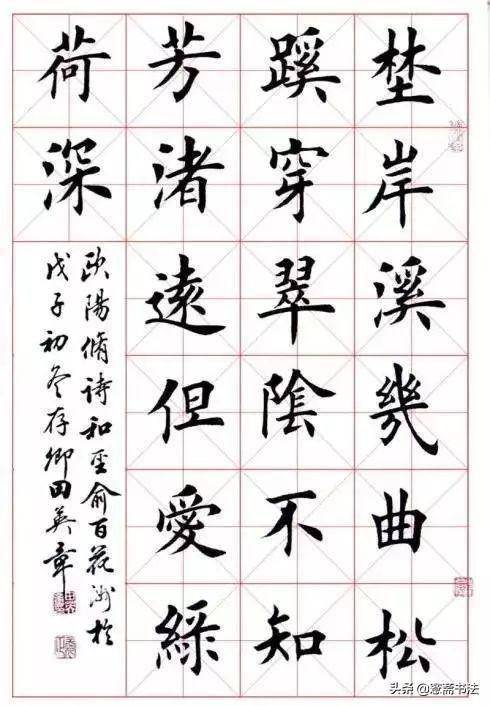 埜岸溪幾曲松
蹊穿翠陰不知
芳渚遠但愛綠
荷深
歐陽脩詩和聖俞百花洲於
戊子初冬存卿田英章
头条 @愙斋书法